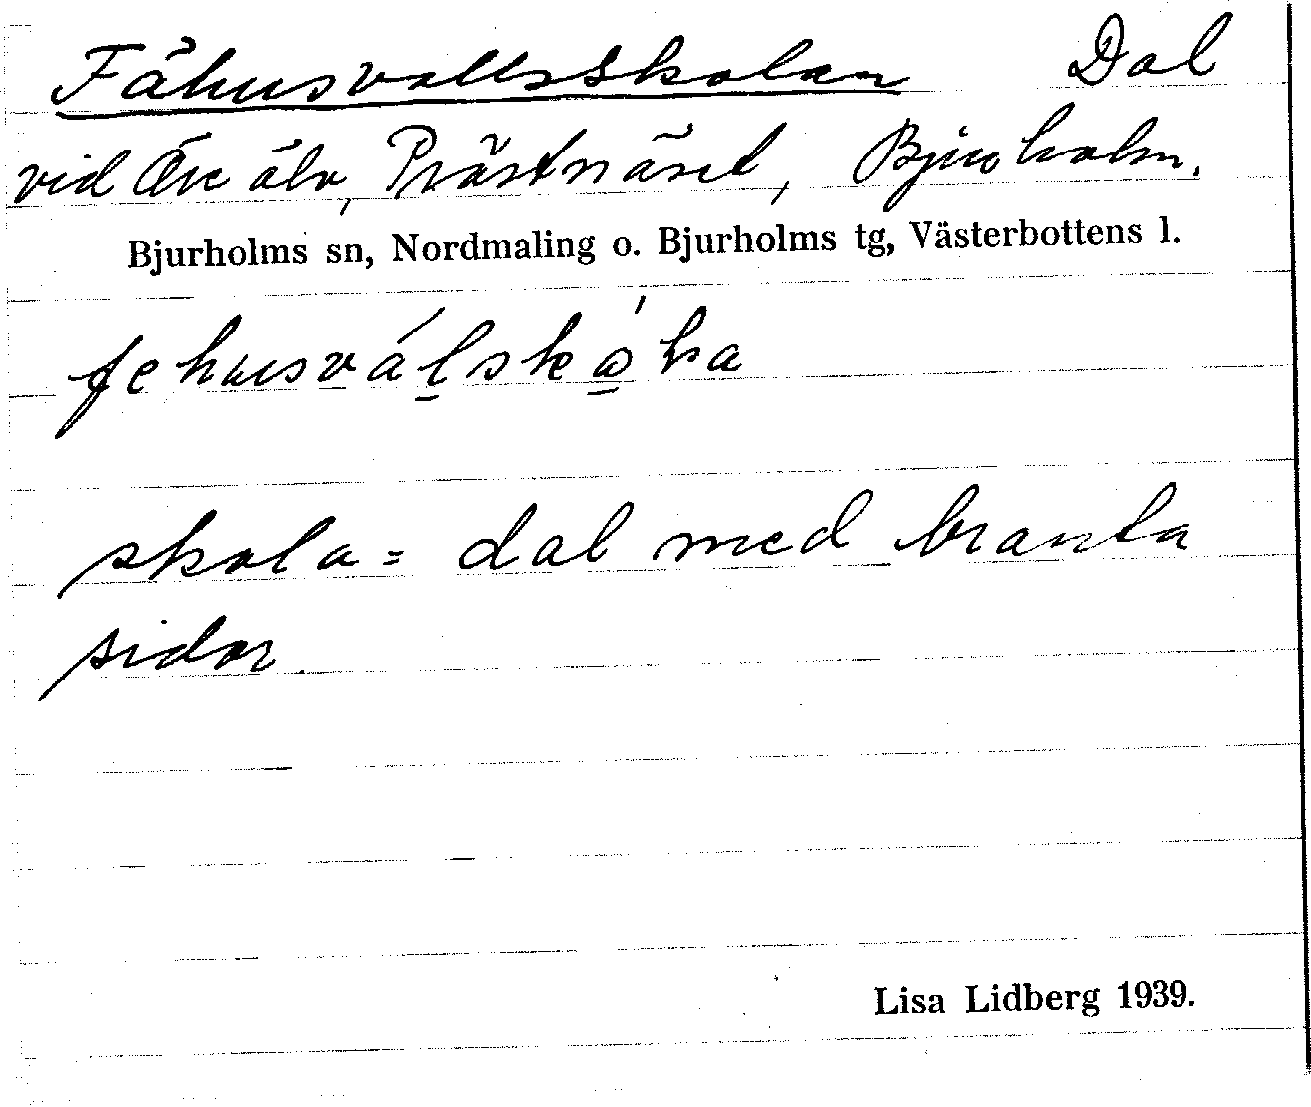 Fähusvallsskolan Dal
vid Öre älv, Prästnäset, Bjurholm.
Bjurholms sn, Nordmaling o. Bjurholms tg, Västerbottens l.
skola = dal med branta
sidor
Lisa Lidberg 1939.